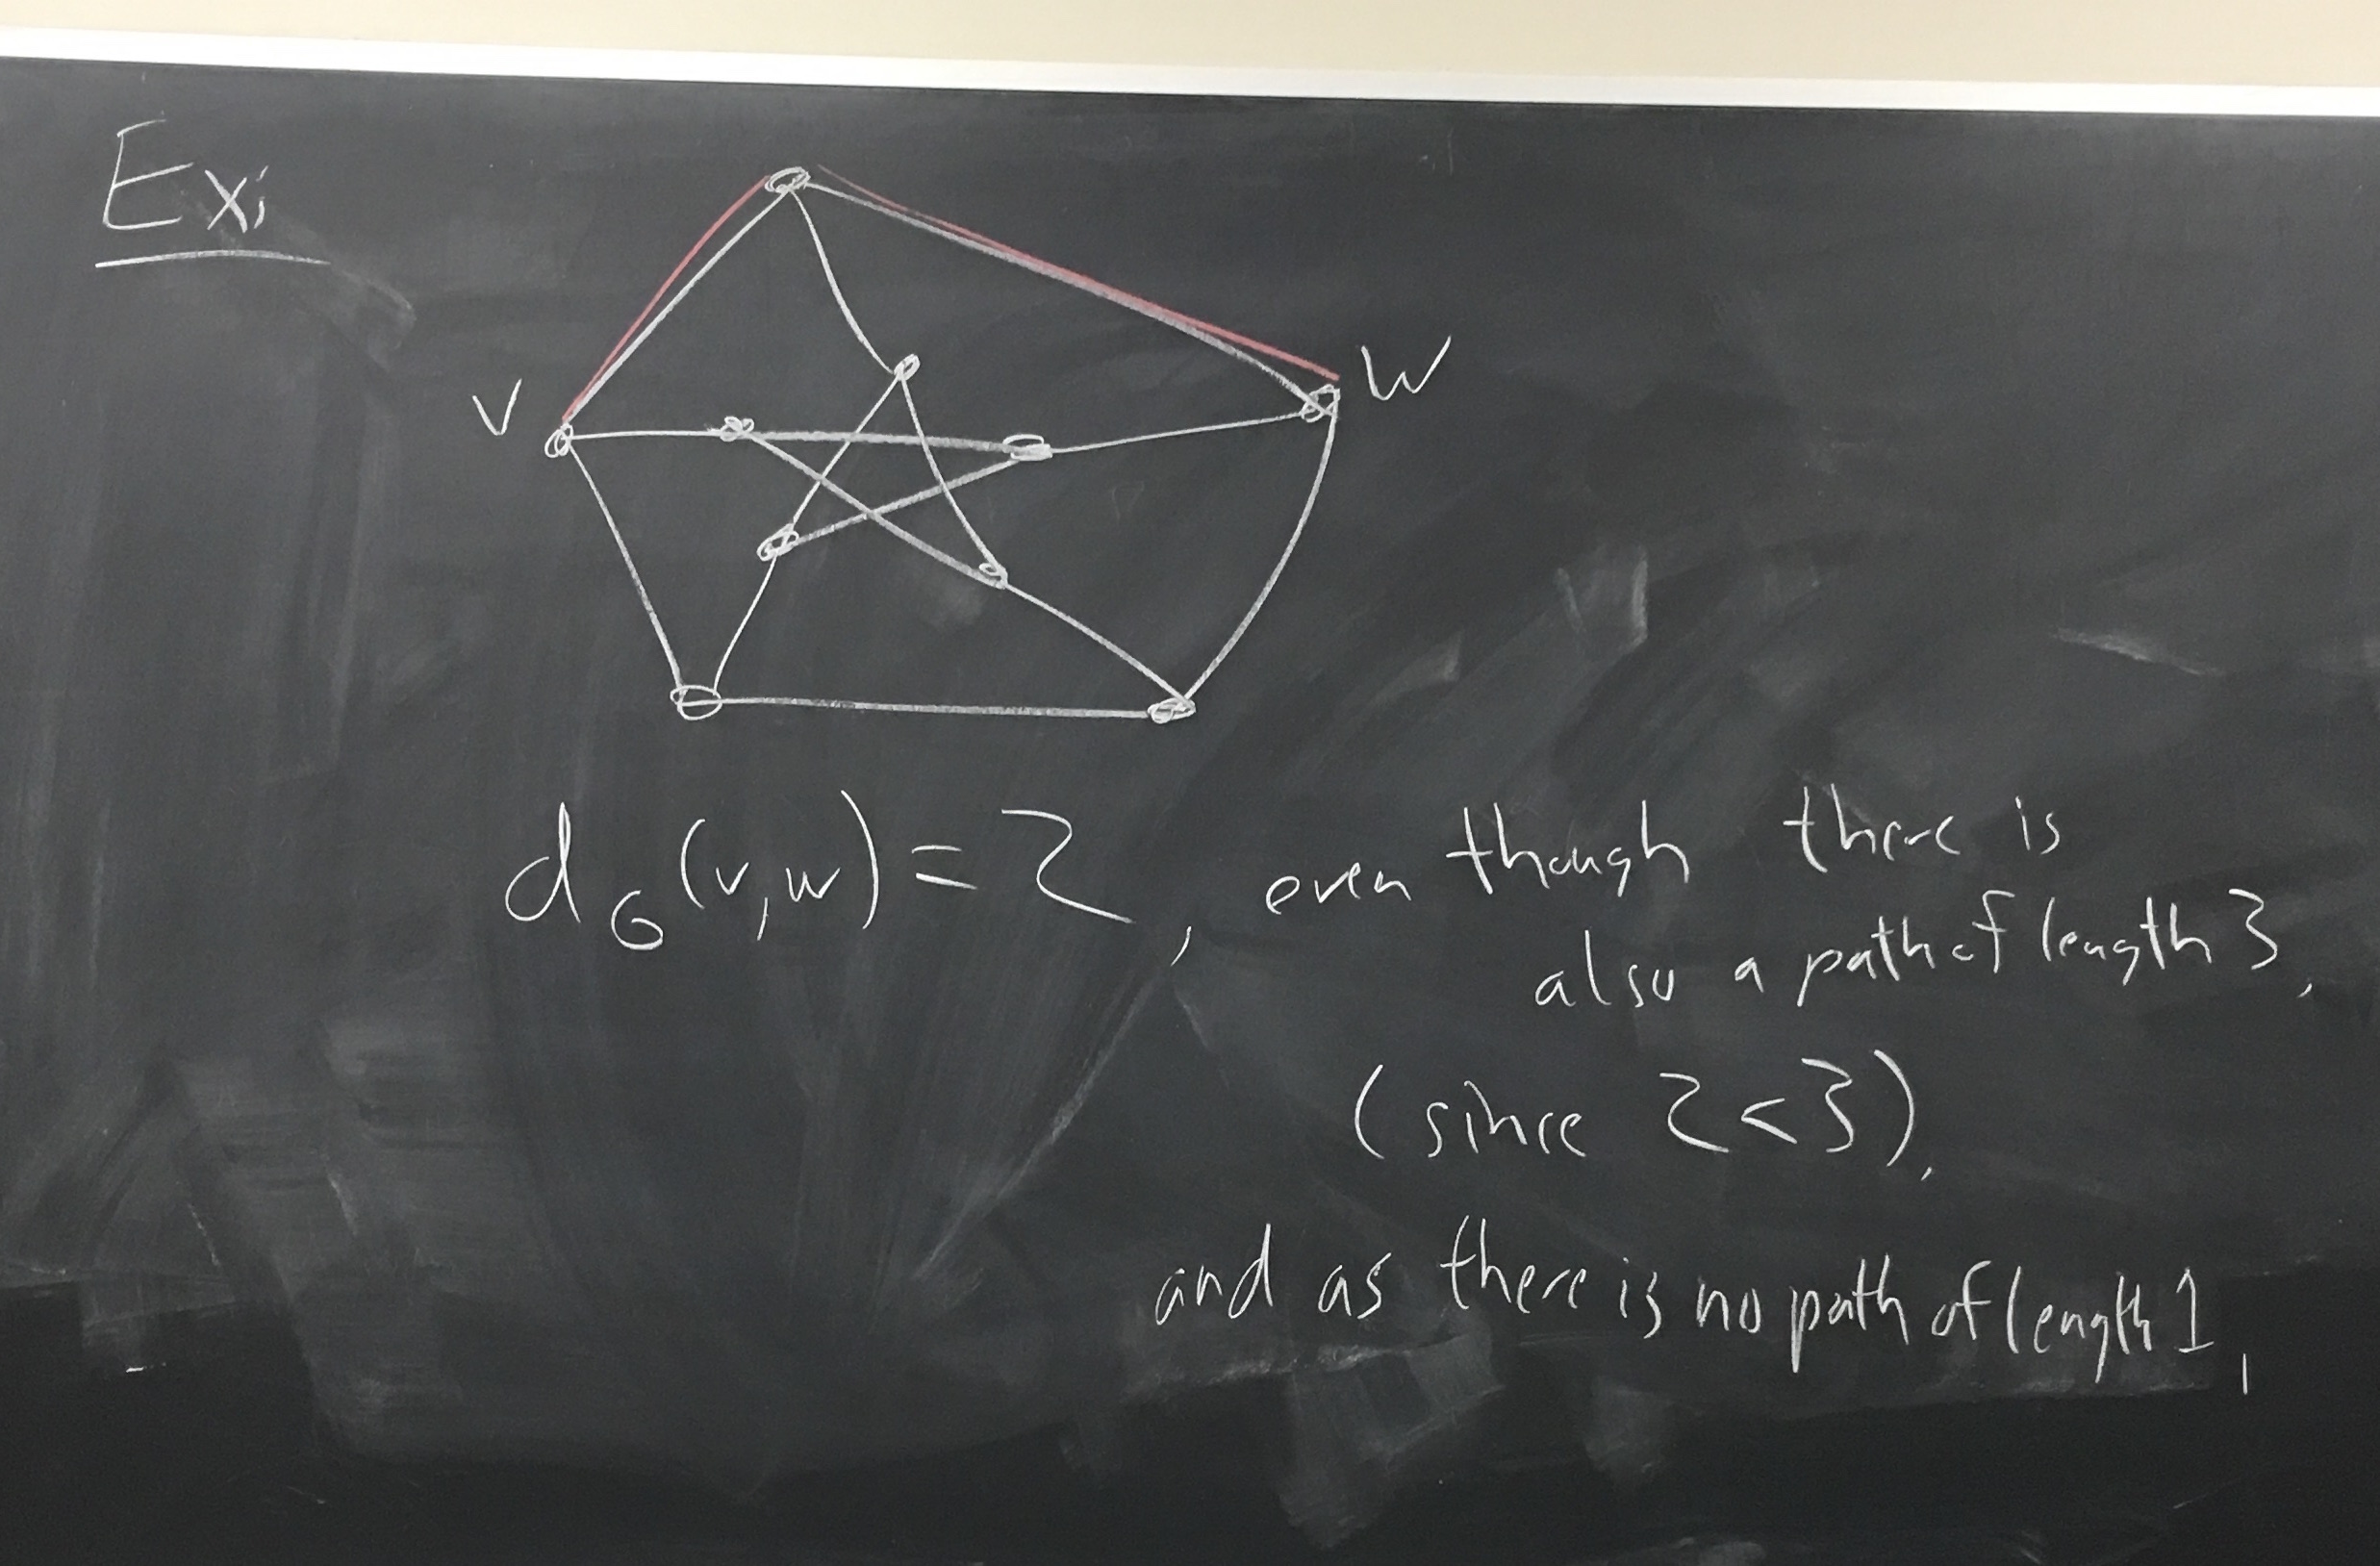 Ex:
v
w
d_G(v,w) = 2, even though there is
also a path of length 3,
(since 2 < 3),
and as there is no path of length 1,